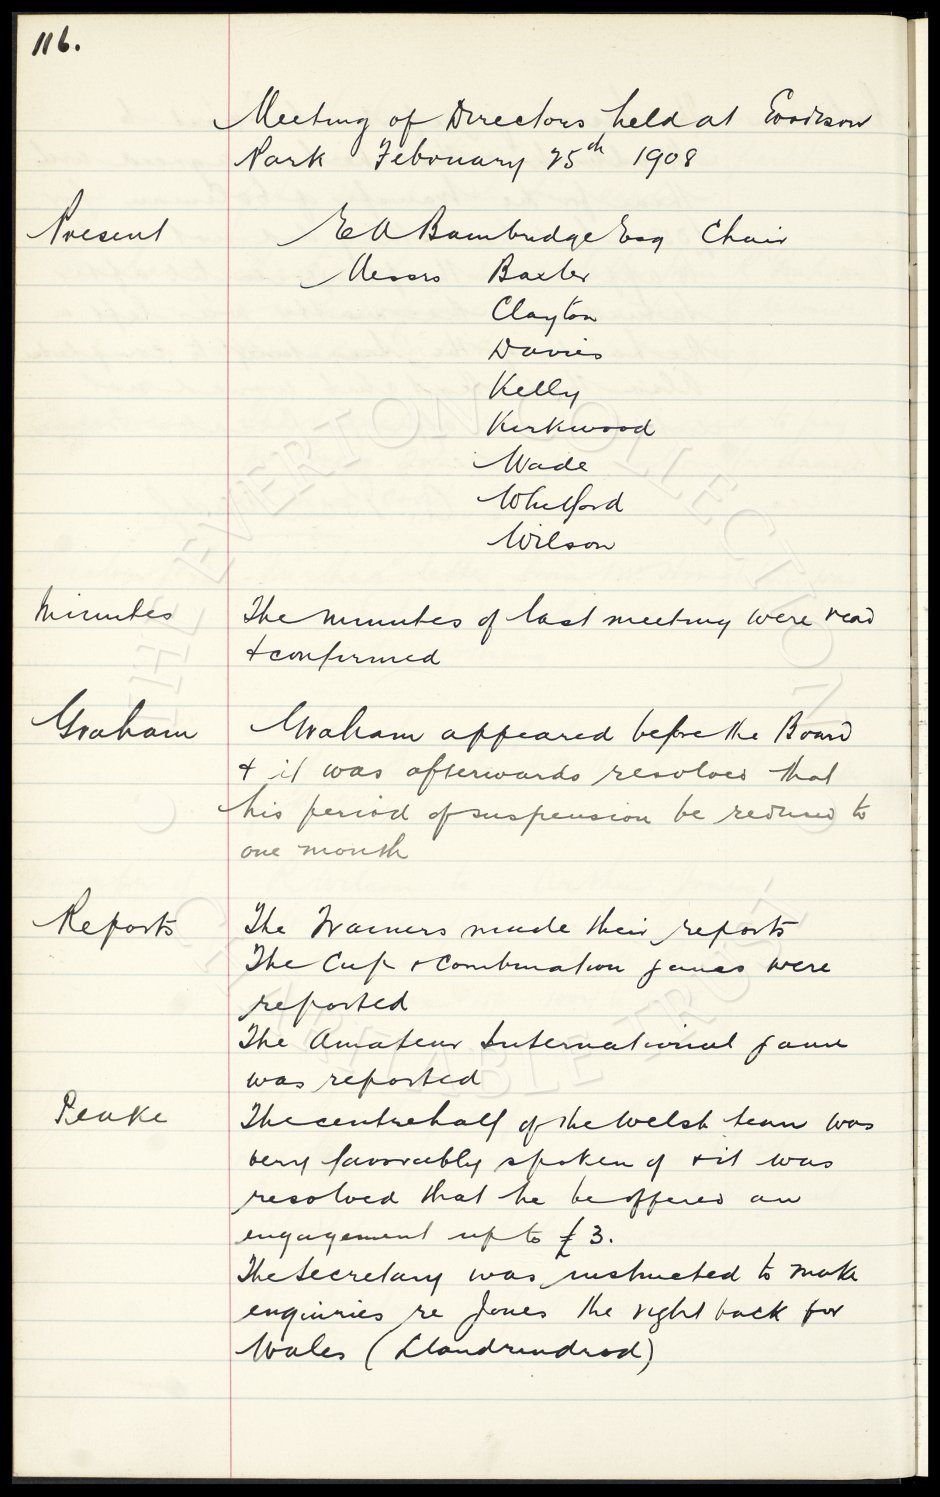 116.
Meeting of Directors held at Goodison
Park February 25th 1908
Present E A Bainbridge Esq Chair
Messrs Baxter
Clayton
Davies
Kelly
Kirkwood
Wade
Whitford
Wilson
Minutes The minutes of last meeting were read
+ confirmed
Graham Graham appeared before the Board
+ it was afterwards resolved that
his period of suspension be reduced to
one month
Reports The Trainers made their reports
The Cup + Combination games were
reported
The Amateur International game
was reported
Peake The centre half of the Welsh team was
very favorably spoken of + it was
resolved that he be offered an
engagement up to £3.
The Secretary was instructed to make
enquiries re Jones the right back for
Wales (Llandrindod)
© THE EVERTON COLLECTION
CHARITABLE TRUST